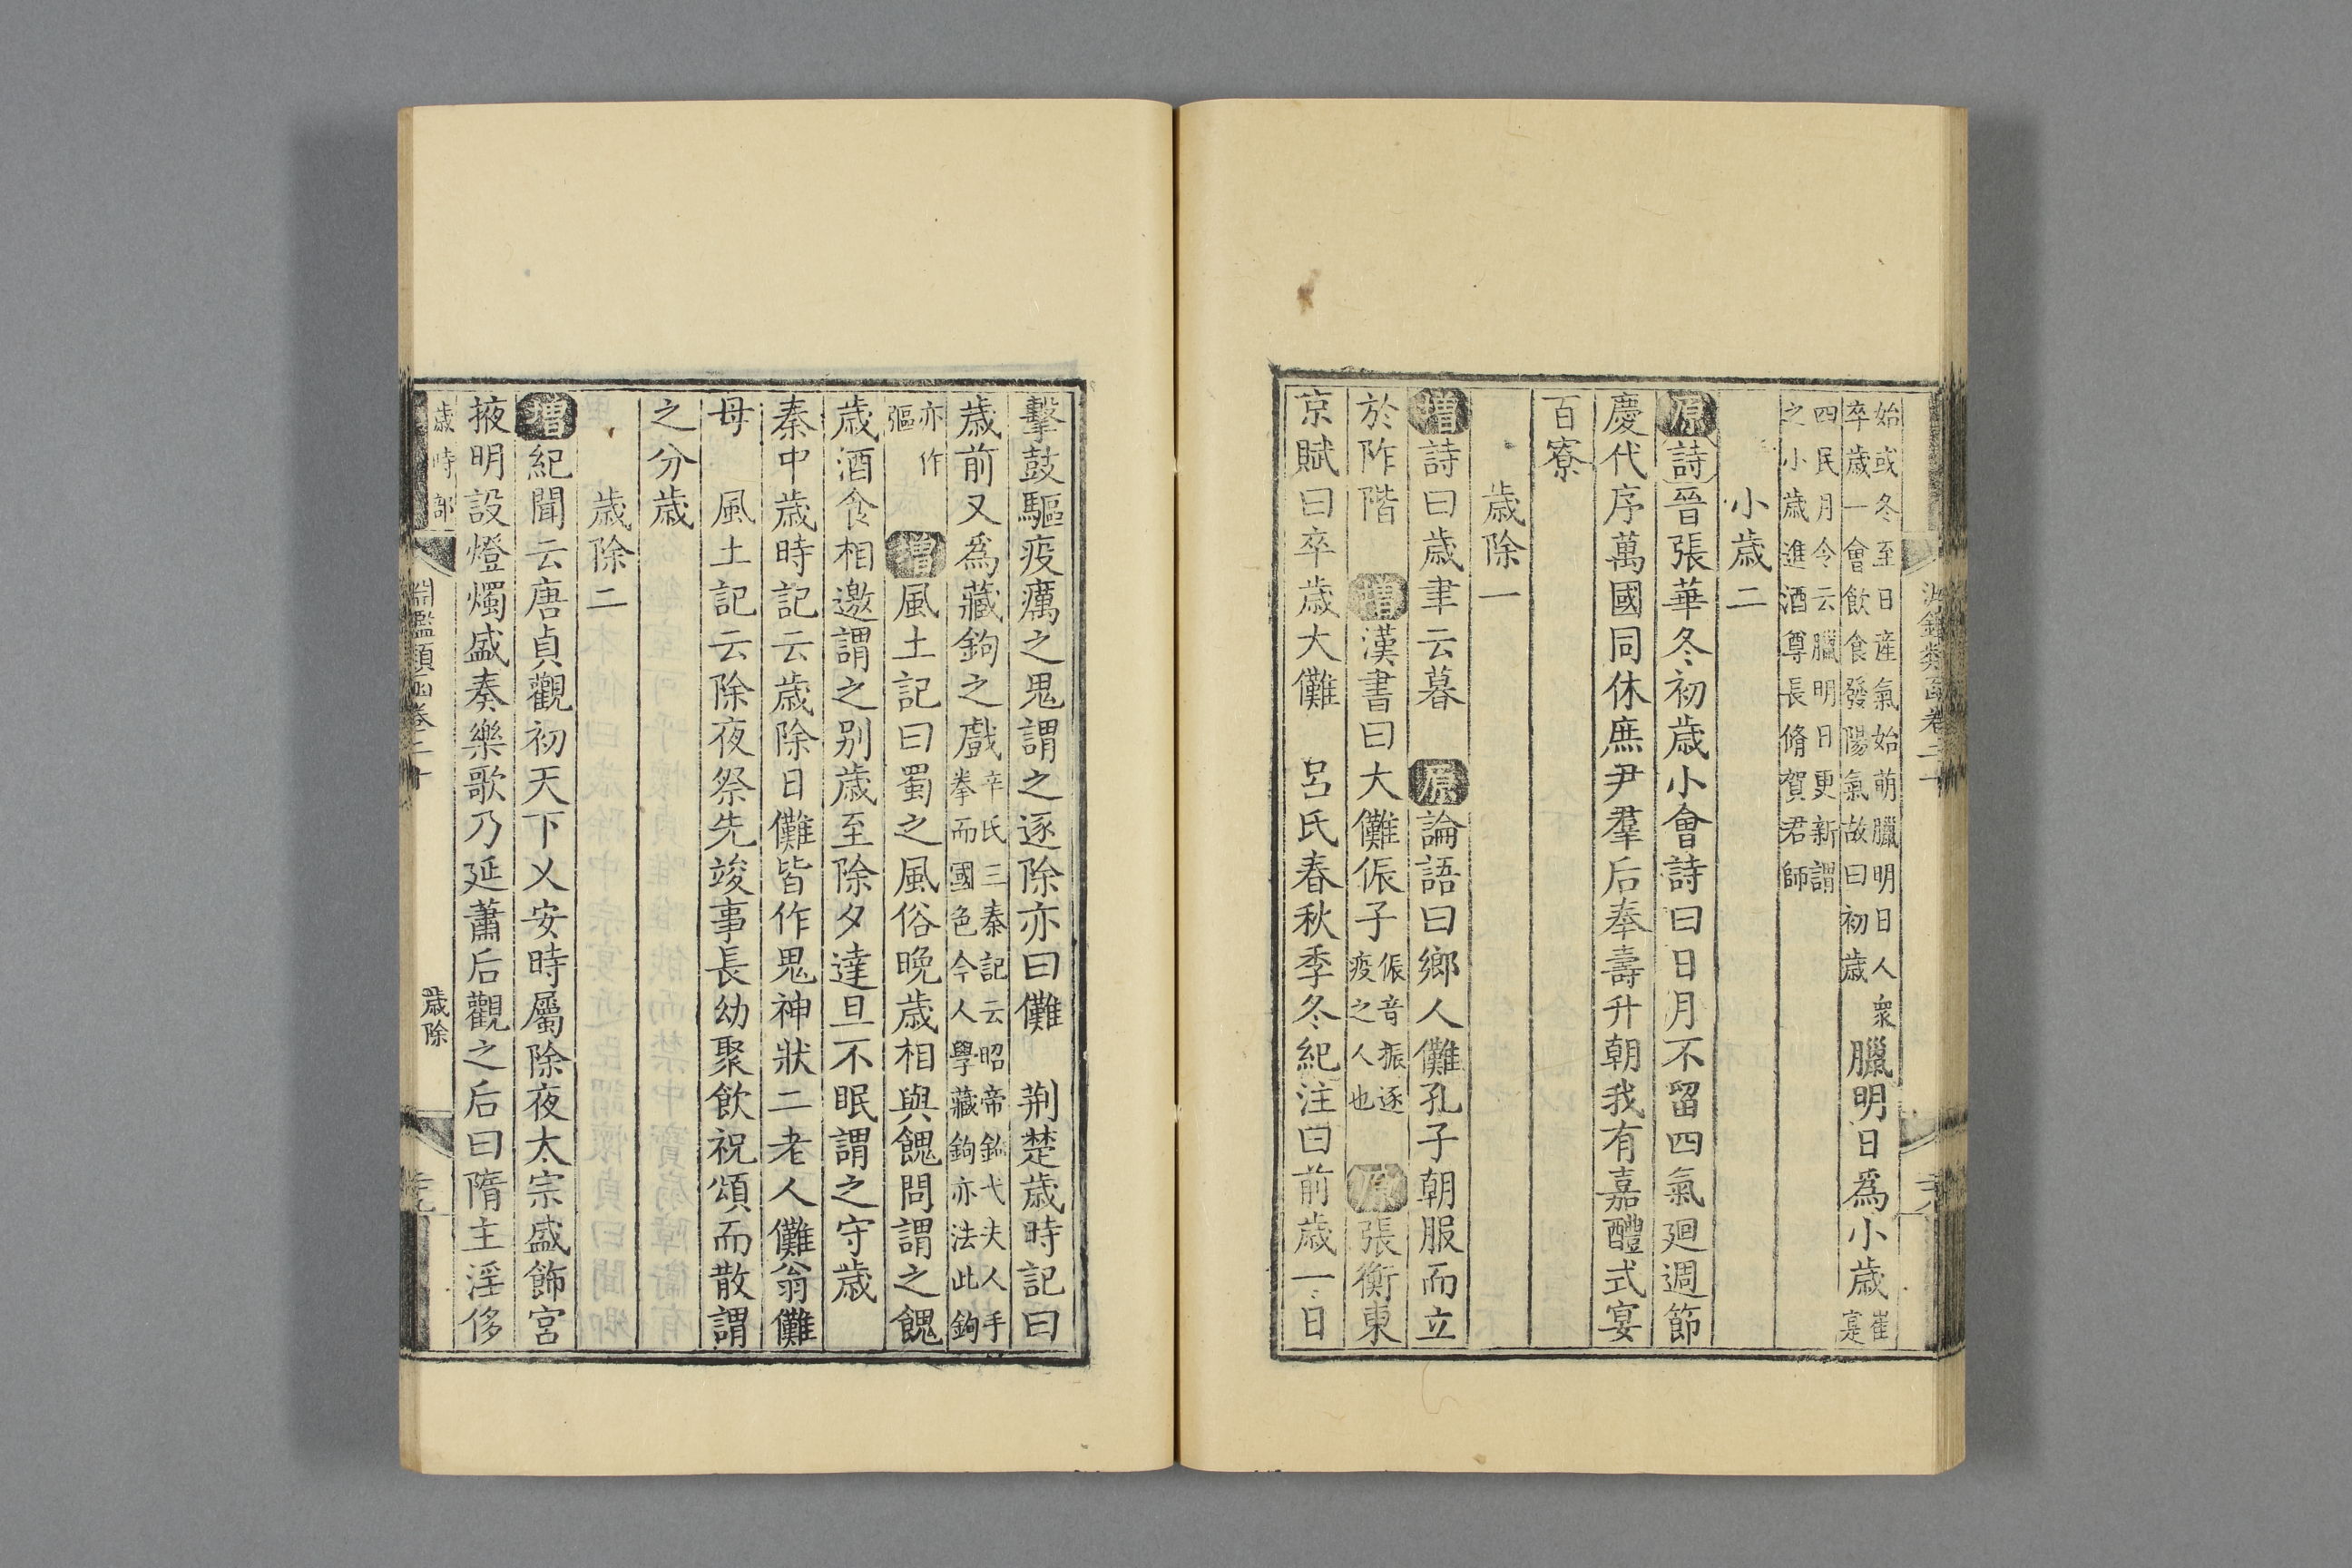 始或冬至日産氣始萌臘明日人衆
卒歲一會飲食發陽氣故曰初歲
臘明日爲小歲
崔寔
四民月令云臘明日更新謂
之小歲進酒尊長脩賀君師
小歲二
原詩晉張華冬初歲小會詩曰日月不留四氣廻週節
慶代序萬國同休庶尹羣后奉壽升朝我有嘉醴式宴
百寮
歲除一
增詩曰歲聿云暮 原論語曰鄉人儺孔子朝服而立
於阼階 增漢書曰大儺侲子
侲音振逐
疫之人也
原張衡東
京賦曰卒歲大儺 呂氏春秋季冬紀注曰前歲一日
淵鑑類函卷二十
擊鼓驅疫癘之鬼謂之逐除亦曰儺 荆楚歲時記曰
歲前又爲藏鉤之戲
辛氏三秦記云昭帝鉤弋夫人手
拳而國色今人學藏鉤亦法此鉤
亦作
彄
增風土記曰蜀之風俗晚歲相與餽問謂之餽
歲酒食相邀謂之别歲至除夕達旦不眠謂之守歲
秦中歲時記云歲除日儺皆作鬼神狀二老人儺翁儺
母 風土記云除夜祭先竣事長幼聚飲祝頌而散謂
之分歲
歲除二
增紀聞云唐貞觀初天下乂安時屬除夜太宗盛飾宮
掖明設燈燭盛奏樂歌乃延蕭后觀之后曰隋主淫侈
歲時部
淵鑑類函卷二十
歲除